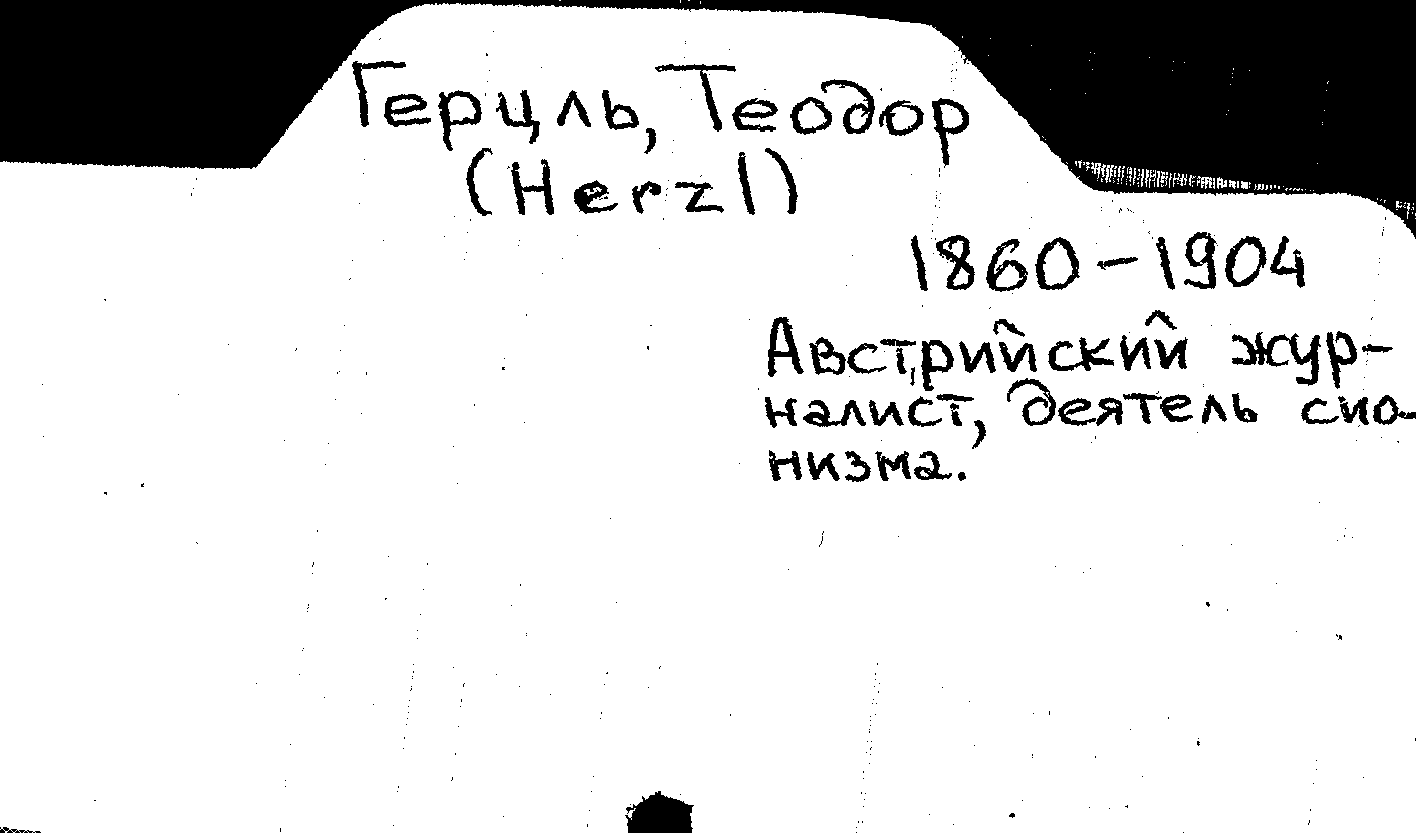 Герцль, Теодор
(Herzl)
1860-1904
Австрийский жур-
налист, деятель сио-
низма.